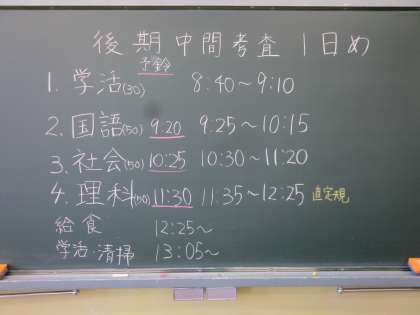 後期中間考査 1日め
予鈴
1. 学活(30) 8:40～9:10
2. 国語(50) 9:20 9:25～10:15
3. 社会(50) 10:25 10:30～11:20
4. 理科(50) 11:30 11:35～12:25 直定規
給食 12:25～
学活・清掃 13:05～